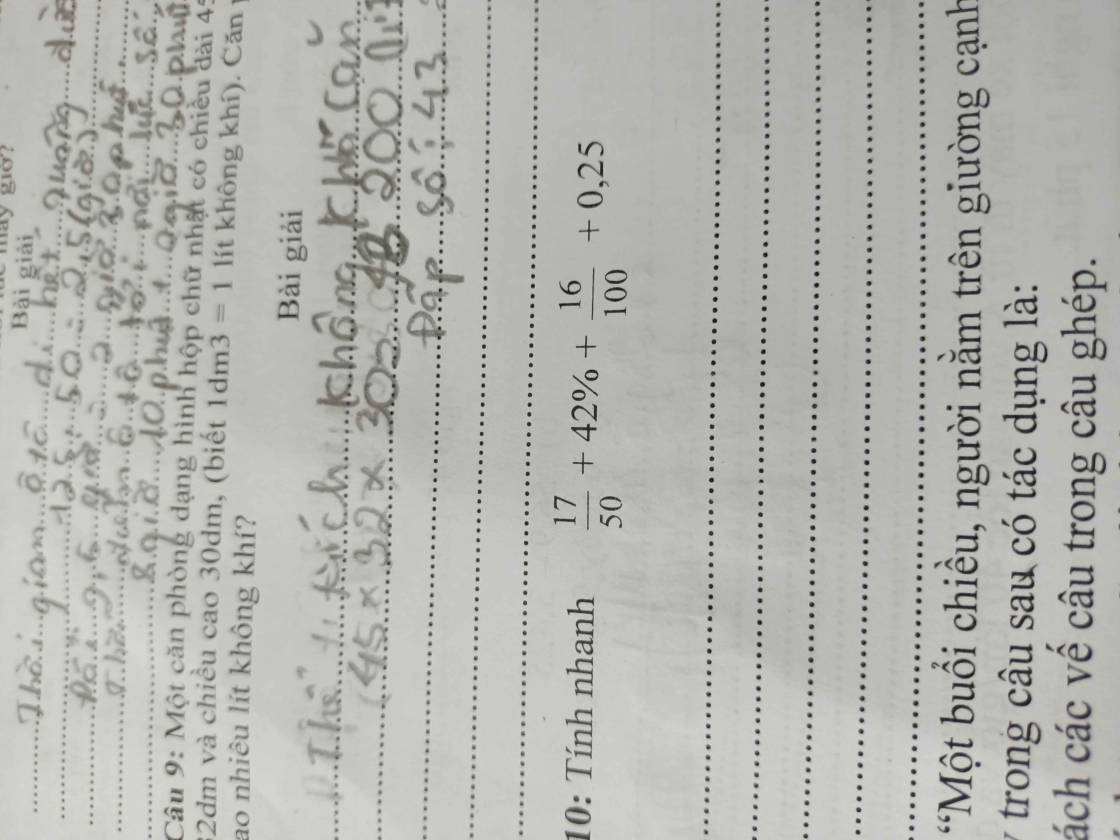 mấy giờ?
Bài giải
Thời gian ô tô đi hết quãng đườ
125 : 50 = 2,5 (giờ)
Đổi 2,5 giờ = 2 giờ 30 phút
ô tô tới nơi lúc số
8 giờ 10 phút + 2 giờ 30 phút
Câu 9: Một căn phòng dạng hình hộp chữ nhật có chiều dài 45
32dm và chiều cao 30dm, (biết 1dm3 = 1 lít không khí). Căn
ao nhiêu lít không khí?
Bài giải
Thể tích không khí căn
(45 x 32 x 30 200 lít
Đáp số: 43
10: Tính nhanh
17/50 + 42% + 16/100 + 0,25
“Một buổi chiều, người nằm trên giường cạnh
trong câu sau có tác dụng là:
ách các vế câu trong câu ghép.